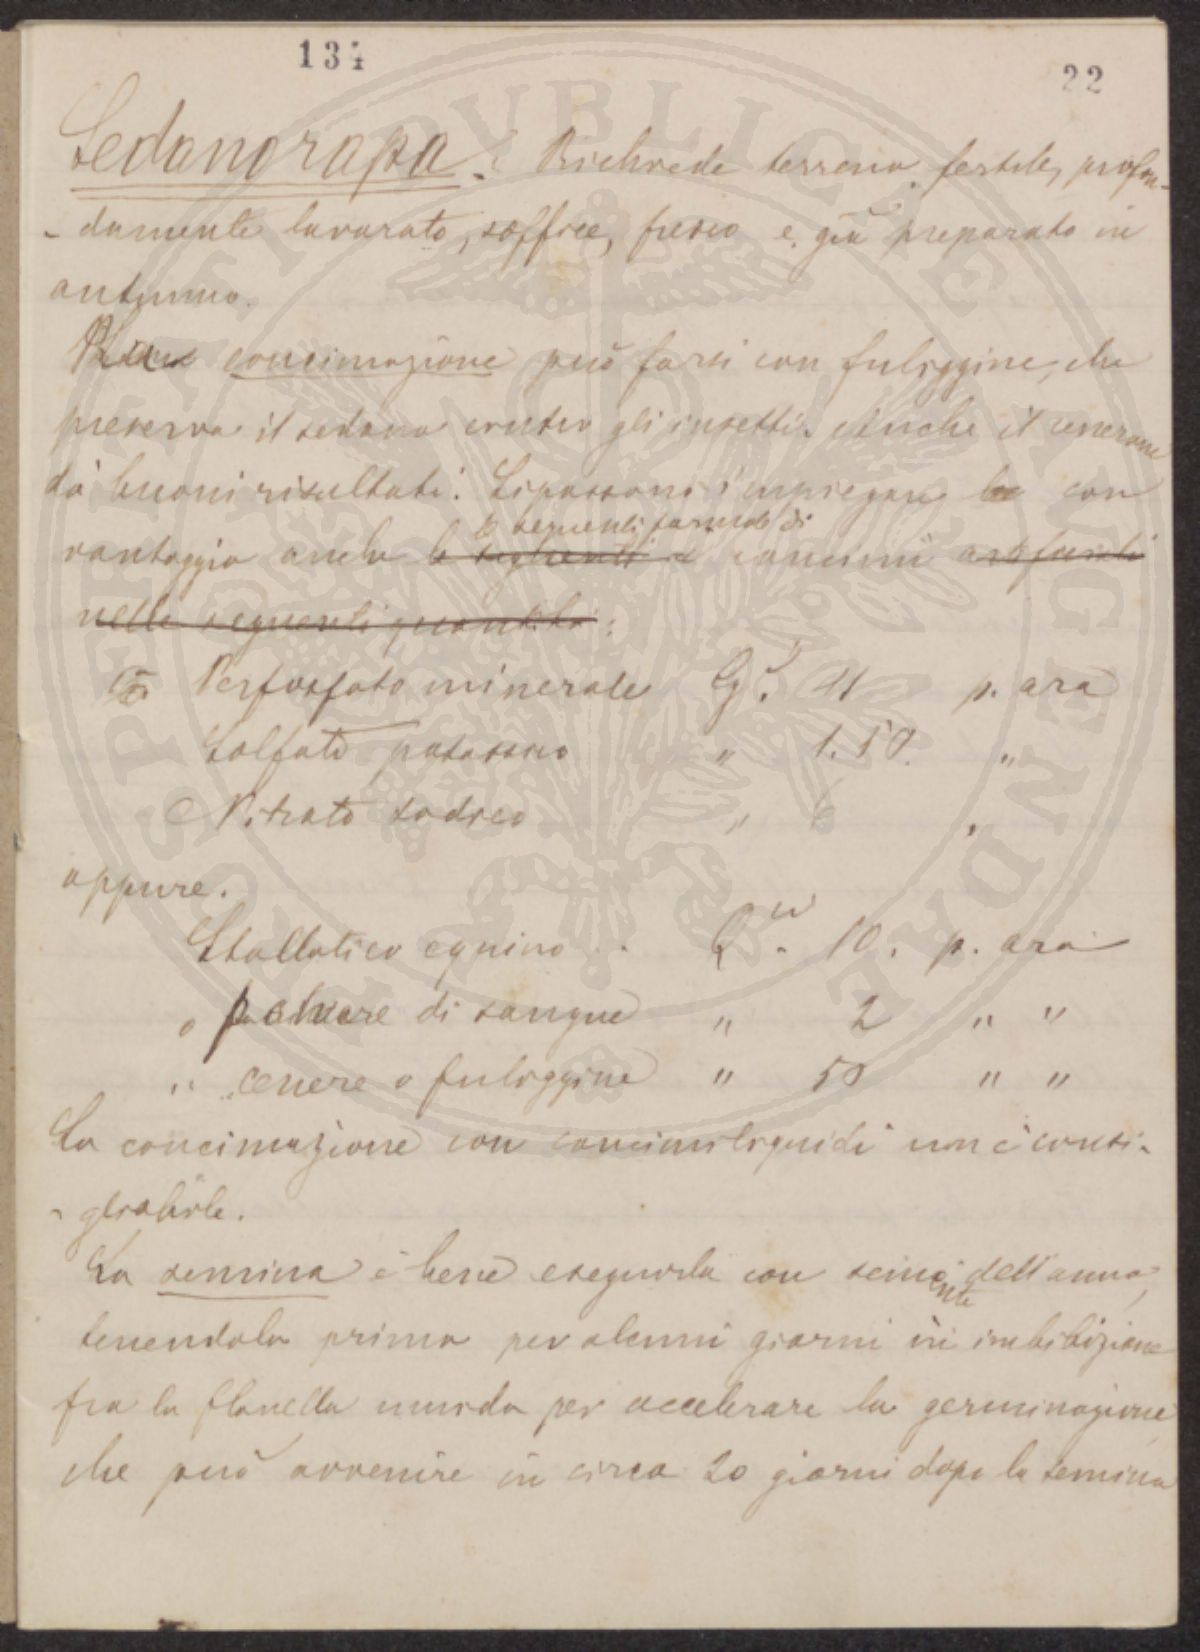 134
22
Sedanorapa: Richiede terreno fertile, profon-
- damente lavorato, soffice, fresco e già preparato in
autunno.
La concimazione può farsi con fuliggine, che
preserva il sedano contro gli insetti. Anche il cenerone
dà buoni risultati. Si possono impiegare con
le seguenti formole di
vantaggio anche le seguenti concimi artificiali
nelle seguenti quantità:
Perfosfato minerale Cg. 11 p. ara
Solfato potassico " 1.50 "
Nitrato sodico " 6 "
oppure.
Stallatico equino . Q.li 10. p. ara
o polvere di sangue " 2 " "
" cenere o fuliggine " 50 " "
La concimazione con concimi liquidi non è consi-
- gliabile.
La semina è bene eseguirla con semente dell'anno,
tenendola prima per alcuni giorni in imbibizione
fra la flanella umida per accelerare la germinazione
che può avvenire in circa 20 giorni dopo la semina